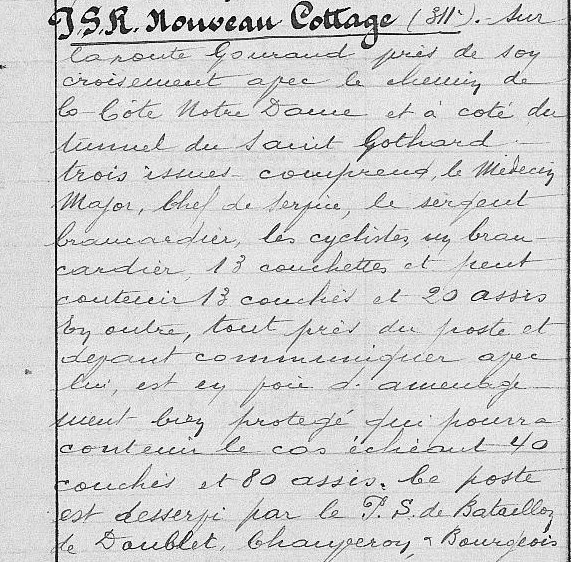 P.S.R. Nouveau Cottage (311e). Sur
la route Gouraud près de son
croisement avec le chemin de
la Côte Notre Dame et à coté du
tunnel du Saint Gothard -
trois issues - comprend, le Médecin
Major, Chef de Service, le sergent
brancardier, les cyclistes, un bran-
cardier, 13 couchettes et peut
contenir 13 couchés et 20 assis
En outre, tout près du poste et
devant communiquer avec
lui, est en voie d'aménage-
ment bien protégé qui pourra
contenir le cas échéant 40
couchés et 80 assis. Ce poste
est desservi par le P.S. de Bataillon
de Doublet, Chauveroy, & Bourgeois